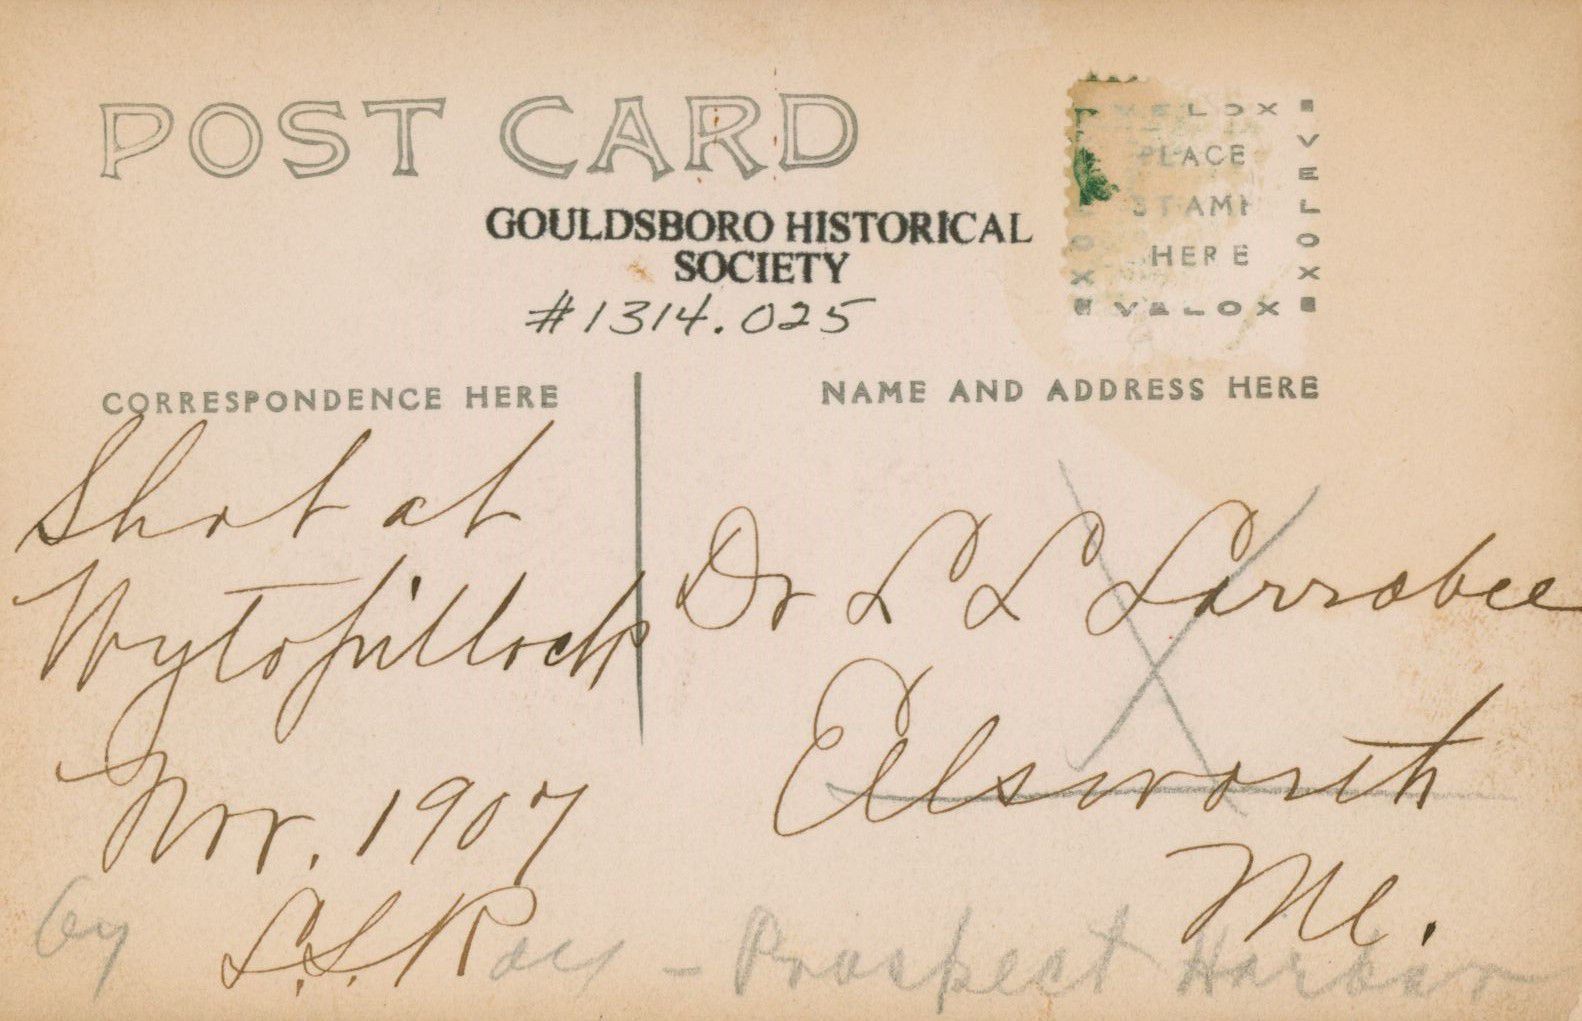 POST CARD
VELOX
PLACE
STAMP
HERE
VELOX
VELOX
VELOX
GOULDSBORO HISTORICAL
SOCIETY
#1314.025
CORRESPONDENCE HERE
NAME AND ADDRESS HERE
Shot at
Wytopitlock
Nov. 1907
by S.S.R
Dr L L Larrabee
Ellsworth
Me.
- Prospect Harbor